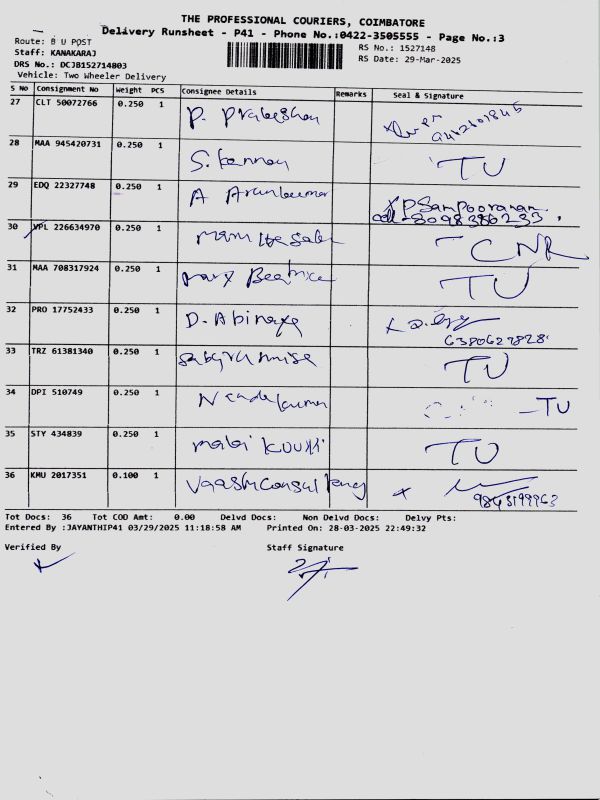 THE PROFESSIONAL COURIERS, COIMBATORE
Delivery Runsheet - P41 - Phone No.:0422-3505555 - Page No.:3
Route: B U POST
RS No.: 1527148
Staff: KANAKARAJ
RS Date: 29-Mar-2025
DRS No.: DCJB152714803
Vehicle: Two Wheeler Delivery
S No Consignment No Weight PCS Consignee Details Remarks Seal & Signature
27 CLT 50072766 0.250 1 P.
28 MAA 945420731 0.250 1 S. Kannan TU
29 EDQ 22327748 0.250 1 A Arunkumar P Sampooranam
8098386233
30 VPL 226634970 0.250 1 TCNR
31 MAA 708317924 0.250 1 TU
32 PRO 17752433 0.250 1 D. Abinaya
6380627828
33 TRZ 61381340 0.250 1 TU
34 DPI 510749 0.250 1 N TU
35 STY 434839 0.250 1 TU
36 KMU 2017351 0.100 1
Tot Docs: 36 Tot COD Amt: 0.00 Delvd Docs: Non Delvd Docs: Delvy Pts:
Entered By :JAYANTHIP41 03/29/2025 11:18:58 AM Printed On: 28-03-2025 22:49:32
Verified By Staff Signature